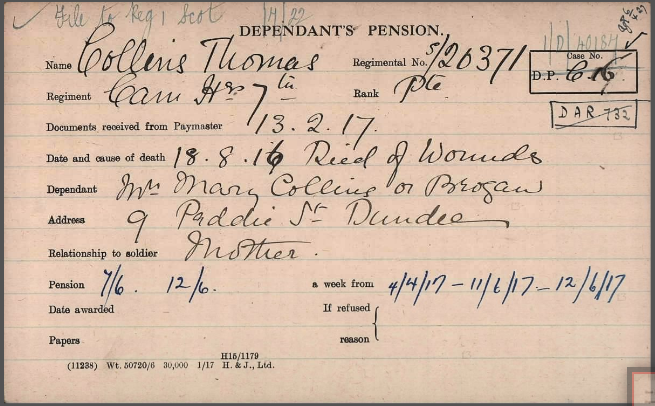 File to Reg 1 Scot 1/4/22
DEPENDANT'S PENSION.
Name Collins Thomas Regimental No. S/20371
Case No.
D.P.
Regiment Cam Hrs 7th Rank Pte
DAR 732
Documents received from Paymaster 13.2.17.
Date and cause of death 18.8.16 Died of Wounds
Dependant Mrs Mary Collins or Brogan
Address 9 Paddie St Dundee
Relationship to soldier Mother.
Pension 7/6. 12/6. a week from 4/4/17 - 11/6/17 - 12/6/17
Date awarded If refused
Papers reason
H16/1179
(11238) Wt. 50720/6 30,000 1/17 H. & J., Ltd.